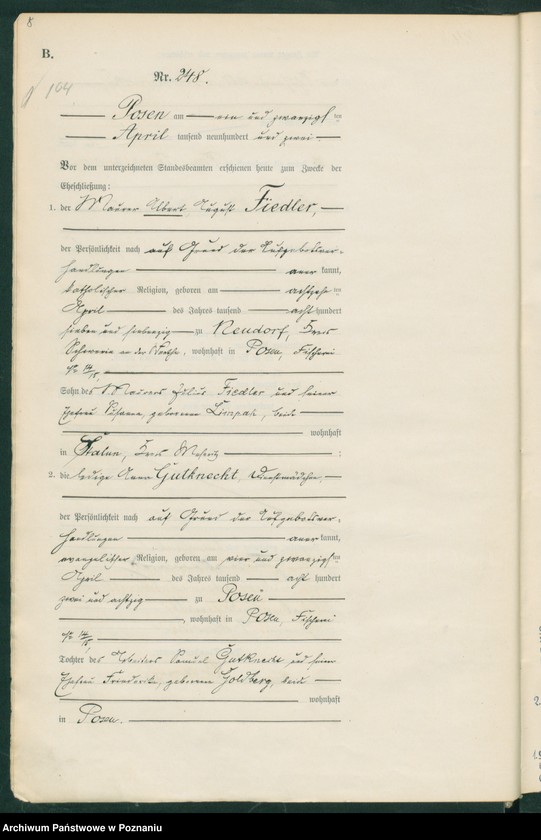 8
B.
Nr. 248.
104
Posen am ein und zwanzigsten
April tausend neunhundert und zwei
Vor dem unterzeichneten Standesbeamten erschienen heute zum Zwecke der
Eheschließung:
1. der Maurer Albert August Fiedler,
der Persönlichkeit nach auf Grund der Aufgebotsver-
handlungen anerkannt,
katholischer Religion, geboren am achtzehnten
April des Jahres tausend acht hundert
sieben und siebenzig zu Neudorf, Kreis
Schwerin an der Warthe, wohnhaft in Posen, Fischerei
Sohn des Maurers Fiedler und seiner
Ehefrau Susanna, geborenen Limpah, beide
wohnhaft
in Stalun, Kreis Meseritz :
2. die ledige Anna Gutknecht, Dienstmädchen,
der Persönlichkeit nach auf Grund der Aufgebotsver-
handlungen anerkannt,
evangelischer Religion, geboren am vier und zwanzigsten
April des Jahres tausend acht hundert
zwei und achtzig zu Posen
, wohnhaft in Posen, Fischerei
Tochter des Arbeiters Samuel Gutknecht und seiner
Ehefrau Friederike, geborenen Goldberg, beide
wohnhaft
in Posen.
Archiwum Państwowe w Poznaniu